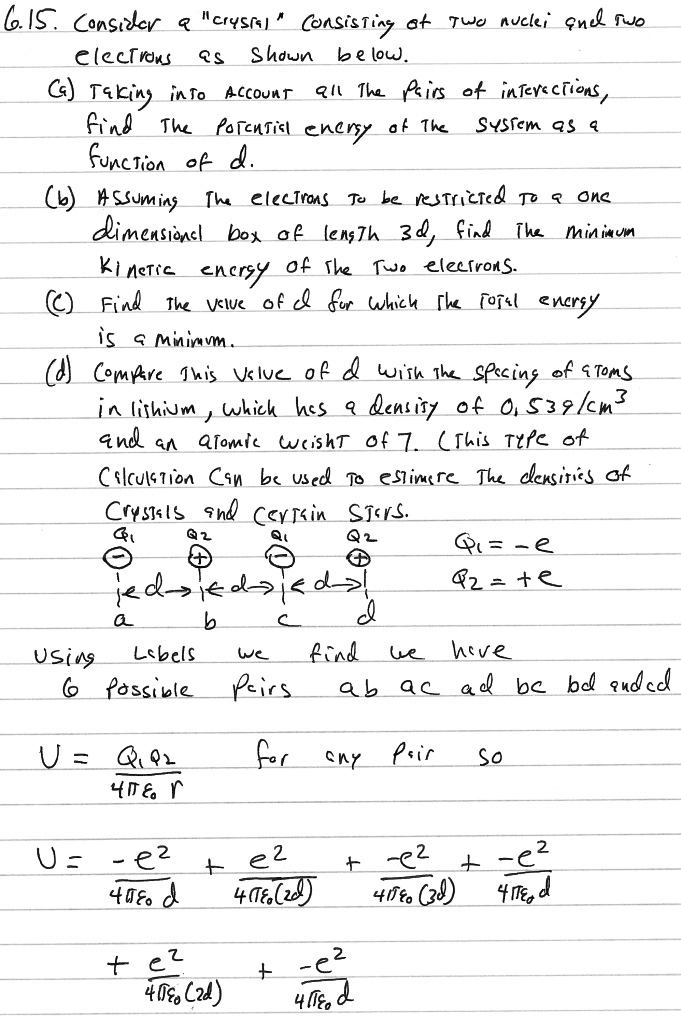 6.15. Consider a "crystal" consisting of two nuclei and two
electrons as shown below.
(a) Taking into account all the pairs of interactions,
find the potential energy of the system as a
function of d.
(b) Assuming the electrons to be restricted to a one
dimensional box of length 3d, find the minimum
kinetic energy of the two electrons.
(c) Find the value of d for which the total energy
is a minimum.
(d) Compare this value of d with the spacing of atoms
in lithium, which has a density of 0.53g/cm³
and an atomic weight of 7. (This type of
calculation can be used to estimate the densities of
crystals and certain stars.
Q1 Q2 Q1 Q2 Q1 = -e
- + - + Q2 = +e
|←d→|←d→|←d→|
a b c d
Using labels we find we have
6 possible pairs ab ac ad bc bd and cd
U = Q1Q2 / 4πε₀ r for any pair so
U = -e² / 4πε₀ d + e² / 4πε₀(2d) + -e² / 4πε₀(3d) + -e² / 4πε₀ d
+ e² / 4πε₀(2d) + -e² / 4πε₀ d